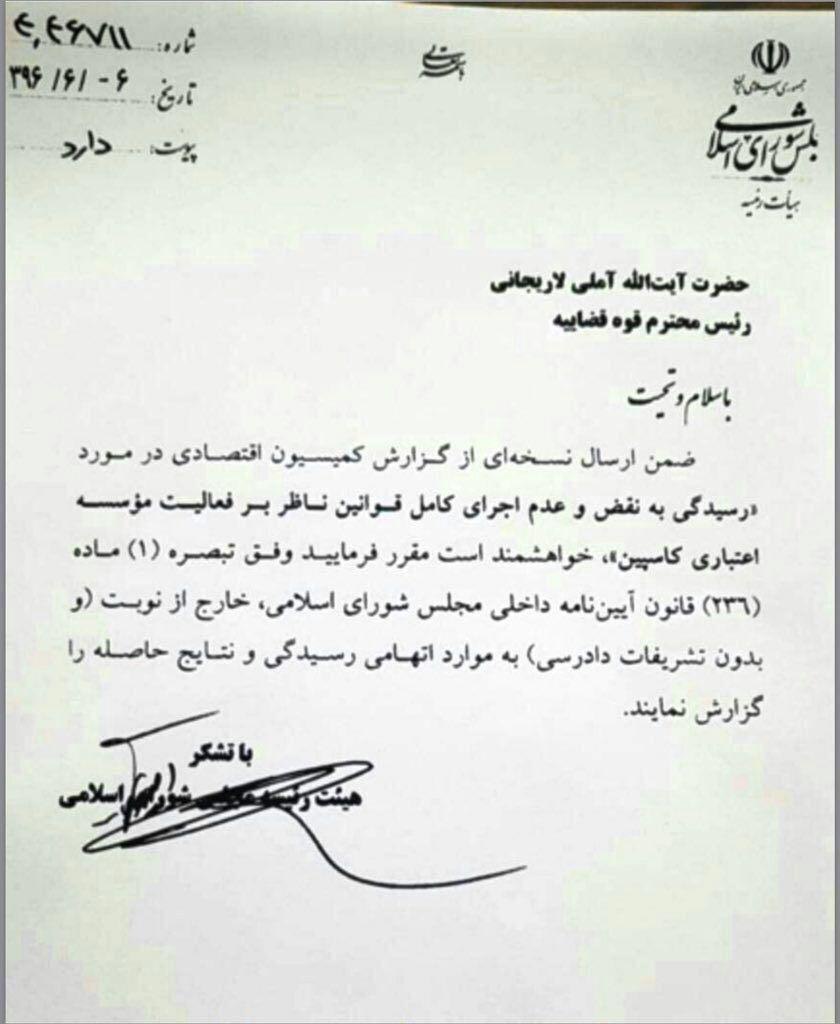 باسمه تعالی
جمهوری اسلامی ایران
مجلس شورای اسلامی
هیأت رئیسه
شماره:
تاریخ: ۳۹۶/۶/۰۶
پیوست: دارد
حضرت آیت‌الله آملی لاریجانی
رئیس محترم قوه قضاییه
با سلام و تحیت
ضمن ارسال نسخه‌ای از گزارش کمیسیون اقتصادی در مورد
«رسیدگی به نقض و عدم اجرای کامل قوانین ناظر بر فعالیت مؤسسه
اعتباری کاسپین»، خواهشمند است مقرر فرمایید وفق تبصره (۱) ماده
(۲۳٦) قانون آیین‌نامه داخلی مجلس شورای اسلامی، خارج از نوبت (و
بدون تشریفات دادرسی) به موارد اتهامی رسیدگی و نتایج حاصله را
گزارش نمایند.
با تشکر
هیئت رئیسه مجلس شورای اسلامی